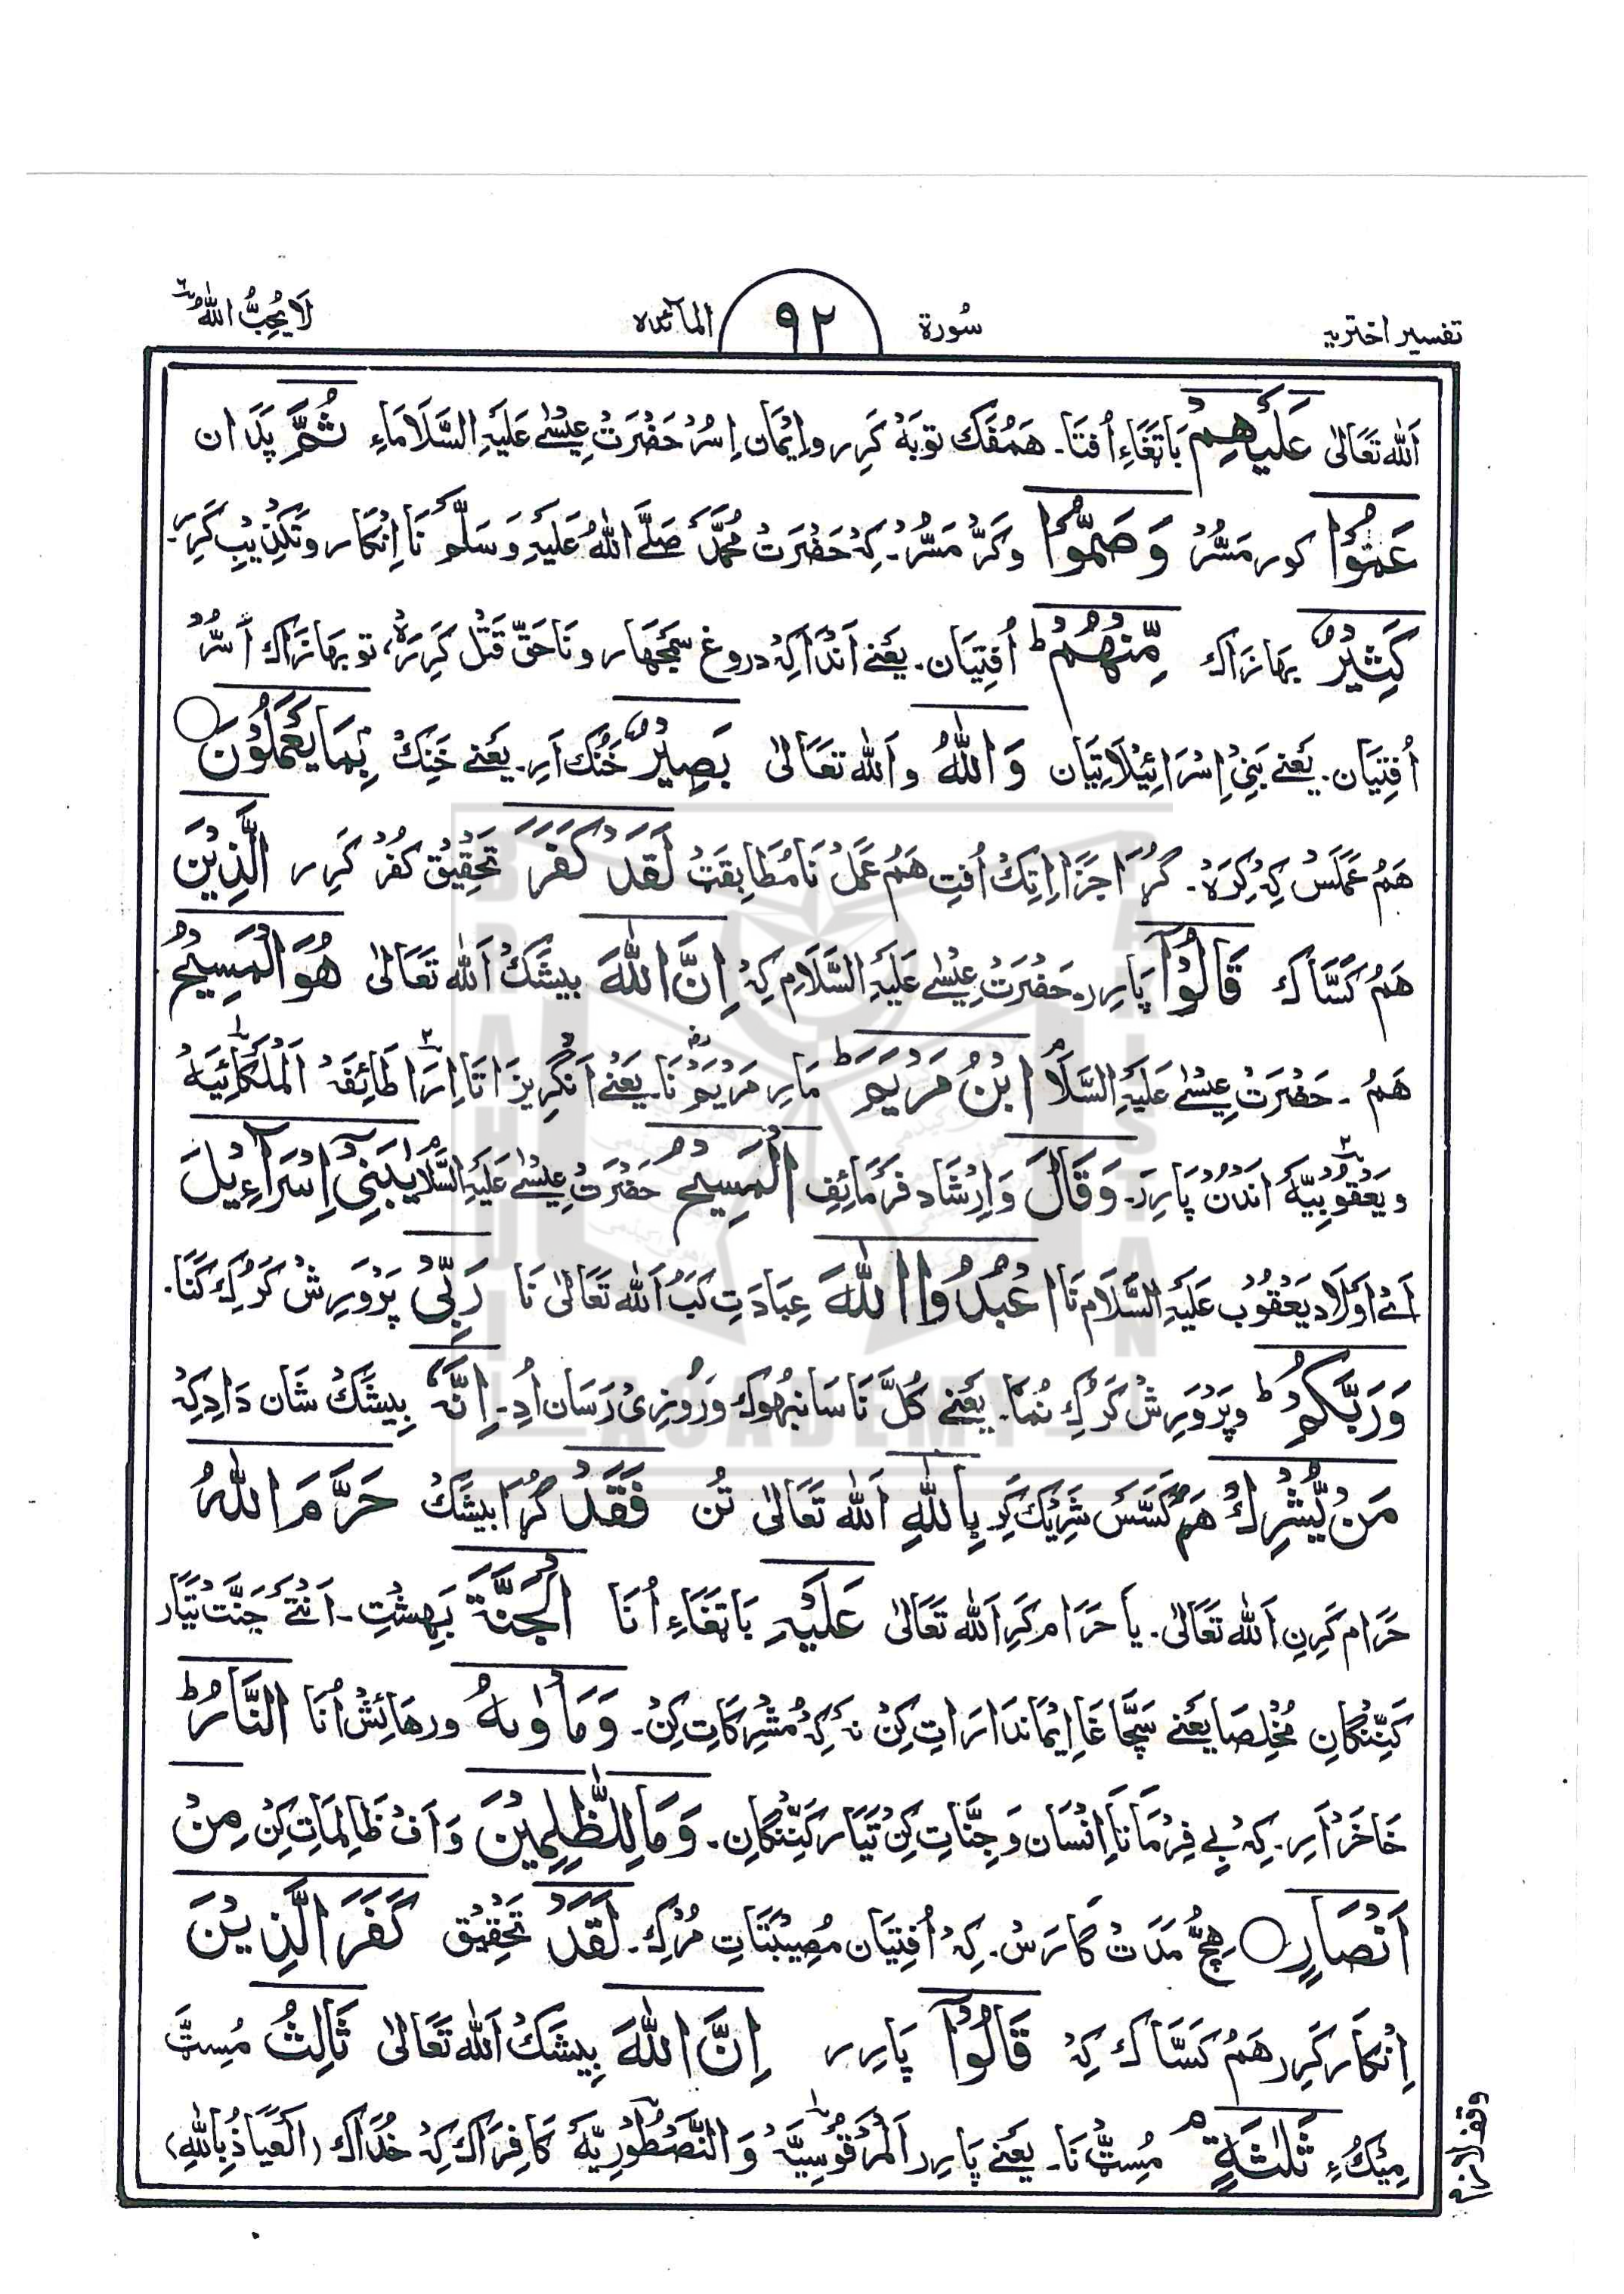 تفسیر اختریہ سُورة ۹۲ المآئدہ لَا یُحِبُّ اللهُ ٦
اَللہ تَعَالیٰ عَلَيْهِمْ بَاتَغَاءِ اُفتَا۔ هَمُفَک توبَہْ کَرِر و اِیْمَان اِسُرْ حَضْرَتْ عِیسٰے عَلَیْہِ السَّلَامَاءِ ثُمَّ پَدَان
عَمُوْا کور مَسُّرْ وَصَمُّوْا و کَرّ مَسُّرْ۔ کِہْ حَضْرَتْ مُحَمَّدْ صَلَّے اللهُ عَلَیْہِ وَسَلَّمْ نَا اِنْکَار و تَکْذِیْبْ کَرِر۔
كَثِيْرٌ بهازَاک مِّنْهُمْ ط اُفتِیَان۔ یَعْنے اَنْدَا کِہْ دروغ سَمَجْهَار و نَاحَقّ قَتْل کَرِرَہْ، تو بهازَاک اَسُّرْ
اُفتِیَان۔ یَعْنے بَنِیْ اِسْرَائِیْلَاتِیَان وَاللهُ و اَللہ تَعَالیٰ بَصِيْرٌ خَنُک اَرِ۔ یَعْنے خَنِکْ بِمَا يَعْمَلُوْنَ
هَمُ عَمَلَسْ کِہْ کِرَہْ۔ گُڑَا جَزَا اِتِکْ اُفتِ هَمُ عَمَلْ نَا مُطَابِقَتْ لَقَدْ كَفَرَ تَحْقِیْق کُفْر کَرِر الَّذِيْنَ
هَمُ کَسَّاک قَالُوْآ پَارِر۔ حَضْرَتْ عِیسٰے عَلَیْہِ السَّلَام کِہْ اِنَّ اللهَ بیشَکْ اَللہ تَعَالیٰ هُوَ الْمَسِيْحُ
هَمُ۔ حَضْرَتْ عِیسٰے عَلَیْہِ السَّلَامْ ابْنُ مَرْيَمَ ط مَار مَرْیَمْ نَا۔ یَعْنے اَنْگریزَاتَا اِرَا طَائِفَہْ اَلْمَلْکَائِیَہْ
و یَعْقُوْبِیَّہْ اَنْدُنْ پَارِر۔ وَقَالَ وَ اِرْشَاد فَرْمَائِفِ الْمَسِيْحُ حَضْرَتْ عِیسٰے عَلَیْہِ السَّلَامْ يٰبَنِيْٓ اِسْرَآءِيْلَ
اَے اَوْلَاد یَعْقُوْب عَلَیْہِ السَّلَام نَا اعْبُدُوا اللهَ عِبَادَتِ کَبْ اَللہ تَعَالیٰ نَا رَبِّيْ پَرْوَرِشْ کَرُک کَنَا۔
وَرَبَّكُمْ ط و پَرْوَرِشْ کَرُک نُمَا۔ یَعْنے کُلَّ نَا سَانبھوک وَ رُوْزِیْ رَسَان اُدِ۔ اِنَّهٗ بیشَکْ شَان دَادِ کِہْ
مَنْ يُّشْرِكْ هَمُ کَسَّسْ شَرِیْک کَرِ بِاللهِ اَللہ تَعَالیٰ تُن فَقَدْ گُڑَا بیشَکْ حَرَّمَ اللهُ
حَرَام کَرِن اَللہ تَعَالیٰ۔ یا حَرَام کَرِ اَللہ تَعَالیٰ عَلَيْهِ بَاتَغَاءِ اُنَا الْجَنَّةَ بَہِشْتِ۔ اَنْتَے جَنَّتْ تَیَّار
کَنِنْگان مُخْلِصَا یَعْنے سَچَّا غَا اِیْمَاندَارَاتِ کِنْ نَہ کِہْ مُشْرِکَاتِ کِنْ۔ وَمَاْوٰىهُ و رهَائِشْ اُنَا النَّارُ ط
خَاخَرْ اَرِ۔ کِہْ بے فِرْمَانَا اِنْسَان وَ جِنَّاتِ کِنْ تَیَّار کَنِنْگان۔ وَمَا لِلظّٰلِمِيْنَ وَ اَفْ ظَالِمَاتِ کِنْ مِنْ
اَنْصَارٍ ہِچّ مَدَتْ گارَسْ۔ کِہْ اُفتِیَان مُصِیْبَتَاتِ مُرْکِ۔ لَقَدْ تَحْقِیْق كَفَرَ الَّذِيْنَ
اِنْکَار کَرِر هَمُ کَسَّاک کِہْ قَالُوْآ پَارِر اِنَّ اللهَ بیشَکْ اَللہ تَعَالیٰ ثَالِثُ مُسِٹ
مِیْکُءِ ثَلٰثَةٍ م مُسِٹ نَا۔ یَعْنے پَارِر اَلْمَرْقُوْسِیَّہْ وَ النَّصْطُوْرِیَّہْ کَافِرَاک کِہْ خُدَاک (اَلْعَیَاذُ بِاللهِ)
BRAHUI ACADEMY PAKISTAN